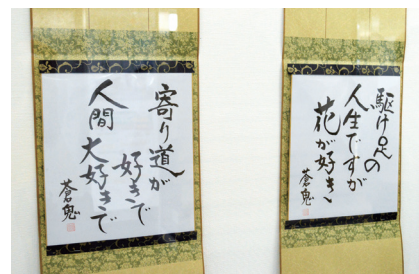 寄り道が
好きで
人間大好きで
蒼鬼
駆け足の
人生ですが
花が好き
蒼鬼